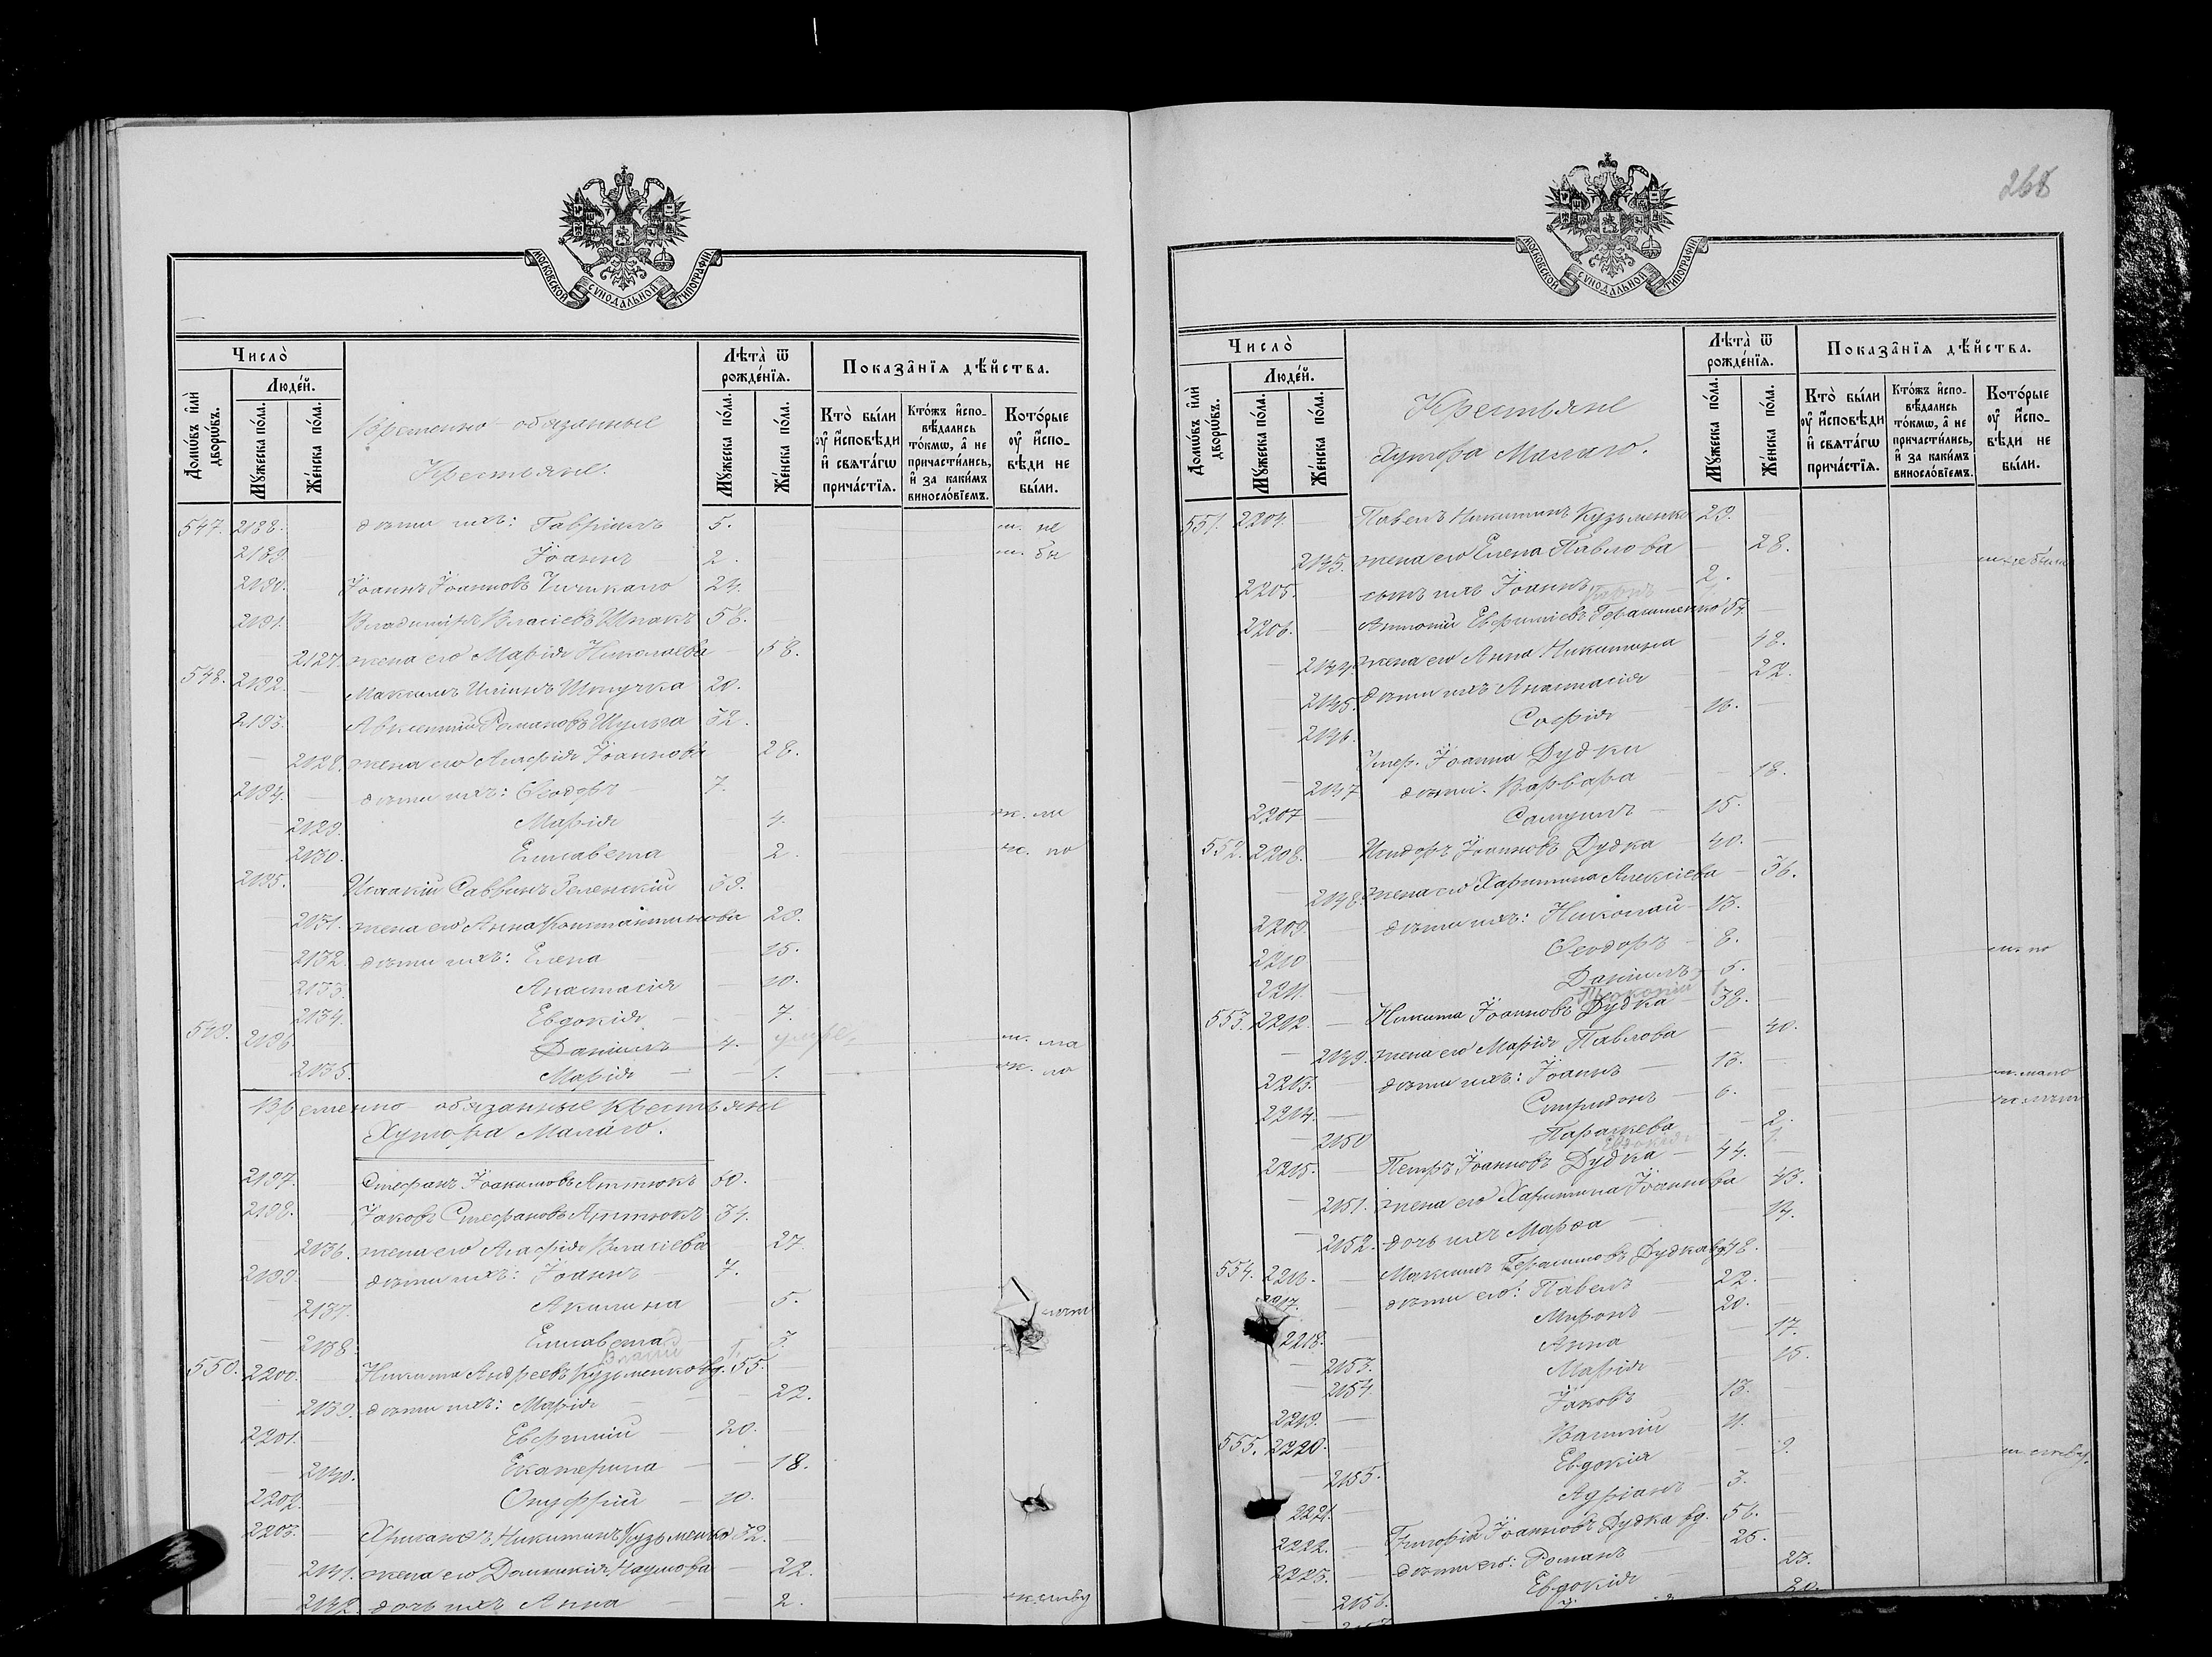 МОСКОВСКОЙ СѴНОДАЛЬНОЙ ТИПОГРАФІИ
Число̀
Людей.
Домѡвъ или дворѡвъ.
Мꙋжеска пола.
Женска пола.
Временно-обязанные
Крестьяне.
Лѣта ѿ рожденїѧ.
Мꙋжеска пола.
Женска пола.
Показанїѧ дѣйства.
Кто были ᲂу исповѣди и свѧтагѡ причастїѧ.
Ктожъ исповѣдались токмѡ, а не причастились, и за какимъ винословїемъ.
Которые ᲂу исповѣди не были.
547. 2188. дѣти ихъ: Гавріилъ 5. м. не
2189. Іоаннъ 2. м. бы
2190. Іоаннъ Іоанновъ 24.
2191. Владиміръ Власіевъ Шпакъ 58.
2127. жена его Марія Николаева 58.
548. 2192. Максимъ Иліинъ 20.
2193. Авксентій Романовъ Шульга 32.
2128. жена его Агафія Іоаннова 28.
2194. дѣти ихъ: Ѳеодоръ 7.
2129. Марія 4. ж. ли
2130. Елисавета 2. ж. по
2195. Исаакій Саввинъ Зеленскій 39.
2131. жена его Анна Константинова 28.
2132. дѣти ихъ: Елена 15.
2133. Анастасія 10.
2134. Евдокія 7.
549. 2196. Даніилъ 4. м. ма
2135. Марія 1. ж. ло
Временно-обязанные Крестьяне
Хутора Малаго.
2197. Стефанъ Іоакимовъ 60.
2198. Іаковъ Стефановъ 34.
2136. жена его Агафія Власіева 27.
2199. дѣти ихъ: Іоаннъ 7.
2137. Акилина 5.
2138. Елисавета 3.
550. 2200. Никита Андреевъ Кузьменко вд. 55.
2139. дѣти ихъ: Марія 22.
2201. Евфимій 20.
2140. Екатерина 18.
2202. Онуфрій 10.
2203. Хрисанѳъ Никитинъ Кузьменко 32.
2141. жена его Домникія Наумова 22.
2142. дочь ихъ Анна 2.
268
МОСКОВСКОЙ СѴНОДАЛЬНОЙ ТИПОГРАФІИ
Число̀
Людей.
Домѡвъ или дворѡвъ.
Мꙋжеска пола.
Женска пола.
Крестьяне
Хутора Малаго.
Лѣта ѿ рожденїѧ.
Мꙋжеска пола.
Женска пола.
Показанїѧ дѣйства.
Кто были ᲂу исповѣди и свѧтагѡ причастїѧ.
Ктожъ исповѣдались токмѡ, а не причастились, и за какимъ винословїемъ.
Которые ᲂу исповѣди не были.
551. 2204. Павелъ Никитинъ Кузьменко 29.
2143. жена его Елена Павлова 28.
2205. сынъ ихъ Іоаннъ 2.
2206. Антоній Евфиміевъ Герашменко 54.
2144. жена его Анна Никитина 48.
2145. дѣти ихъ Анастасія 22.
2146. Софія 16.
Умер. Іоанна Дудки
2147 дѣти: Варвара 18.
2207 Самуилъ 15.
552. 2208. Исидоръ Іоанновъ Дудка 40.
2148. жена его Харитина Алексіева 36.
2209. дѣти ихъ: Николай 13.
2210 Ѳеодоръ 8.
2211. Даніилъ 5. м. по
Прокопій 1
553. 2212. Никита Іоанновъ Дудка 38.
2149. жена его Марія Павлова 40.
2213. дѣти ихъ: Іоаннъ 13.
2214. Спиридонъ 6. м. мало
2150 Параскева 2.
Евдокія 1.
2215. Петръ Іоанновъ Дудка 44.
2151. жена его Харитина Іоаннова 43.
2152. дочь ихъ Марѳа 14.
554. 2216. Максимъ Герасимовъ Дудка вд. 48.
2217. дѣти его: Павелъ 22.
2218. Миронъ 20.
2153. Анна 17.
2154 Марія 15.
2219. Іаковъ 13.
555. 2220. Василій 11.
2155. Евдокія 9.
2221. Адріанъ 3.
2222. Григорій Іоанновъ Дудка вд. 56.
2223. дѣти его: Романъ 25.
2156. Евдокія 23.
20.